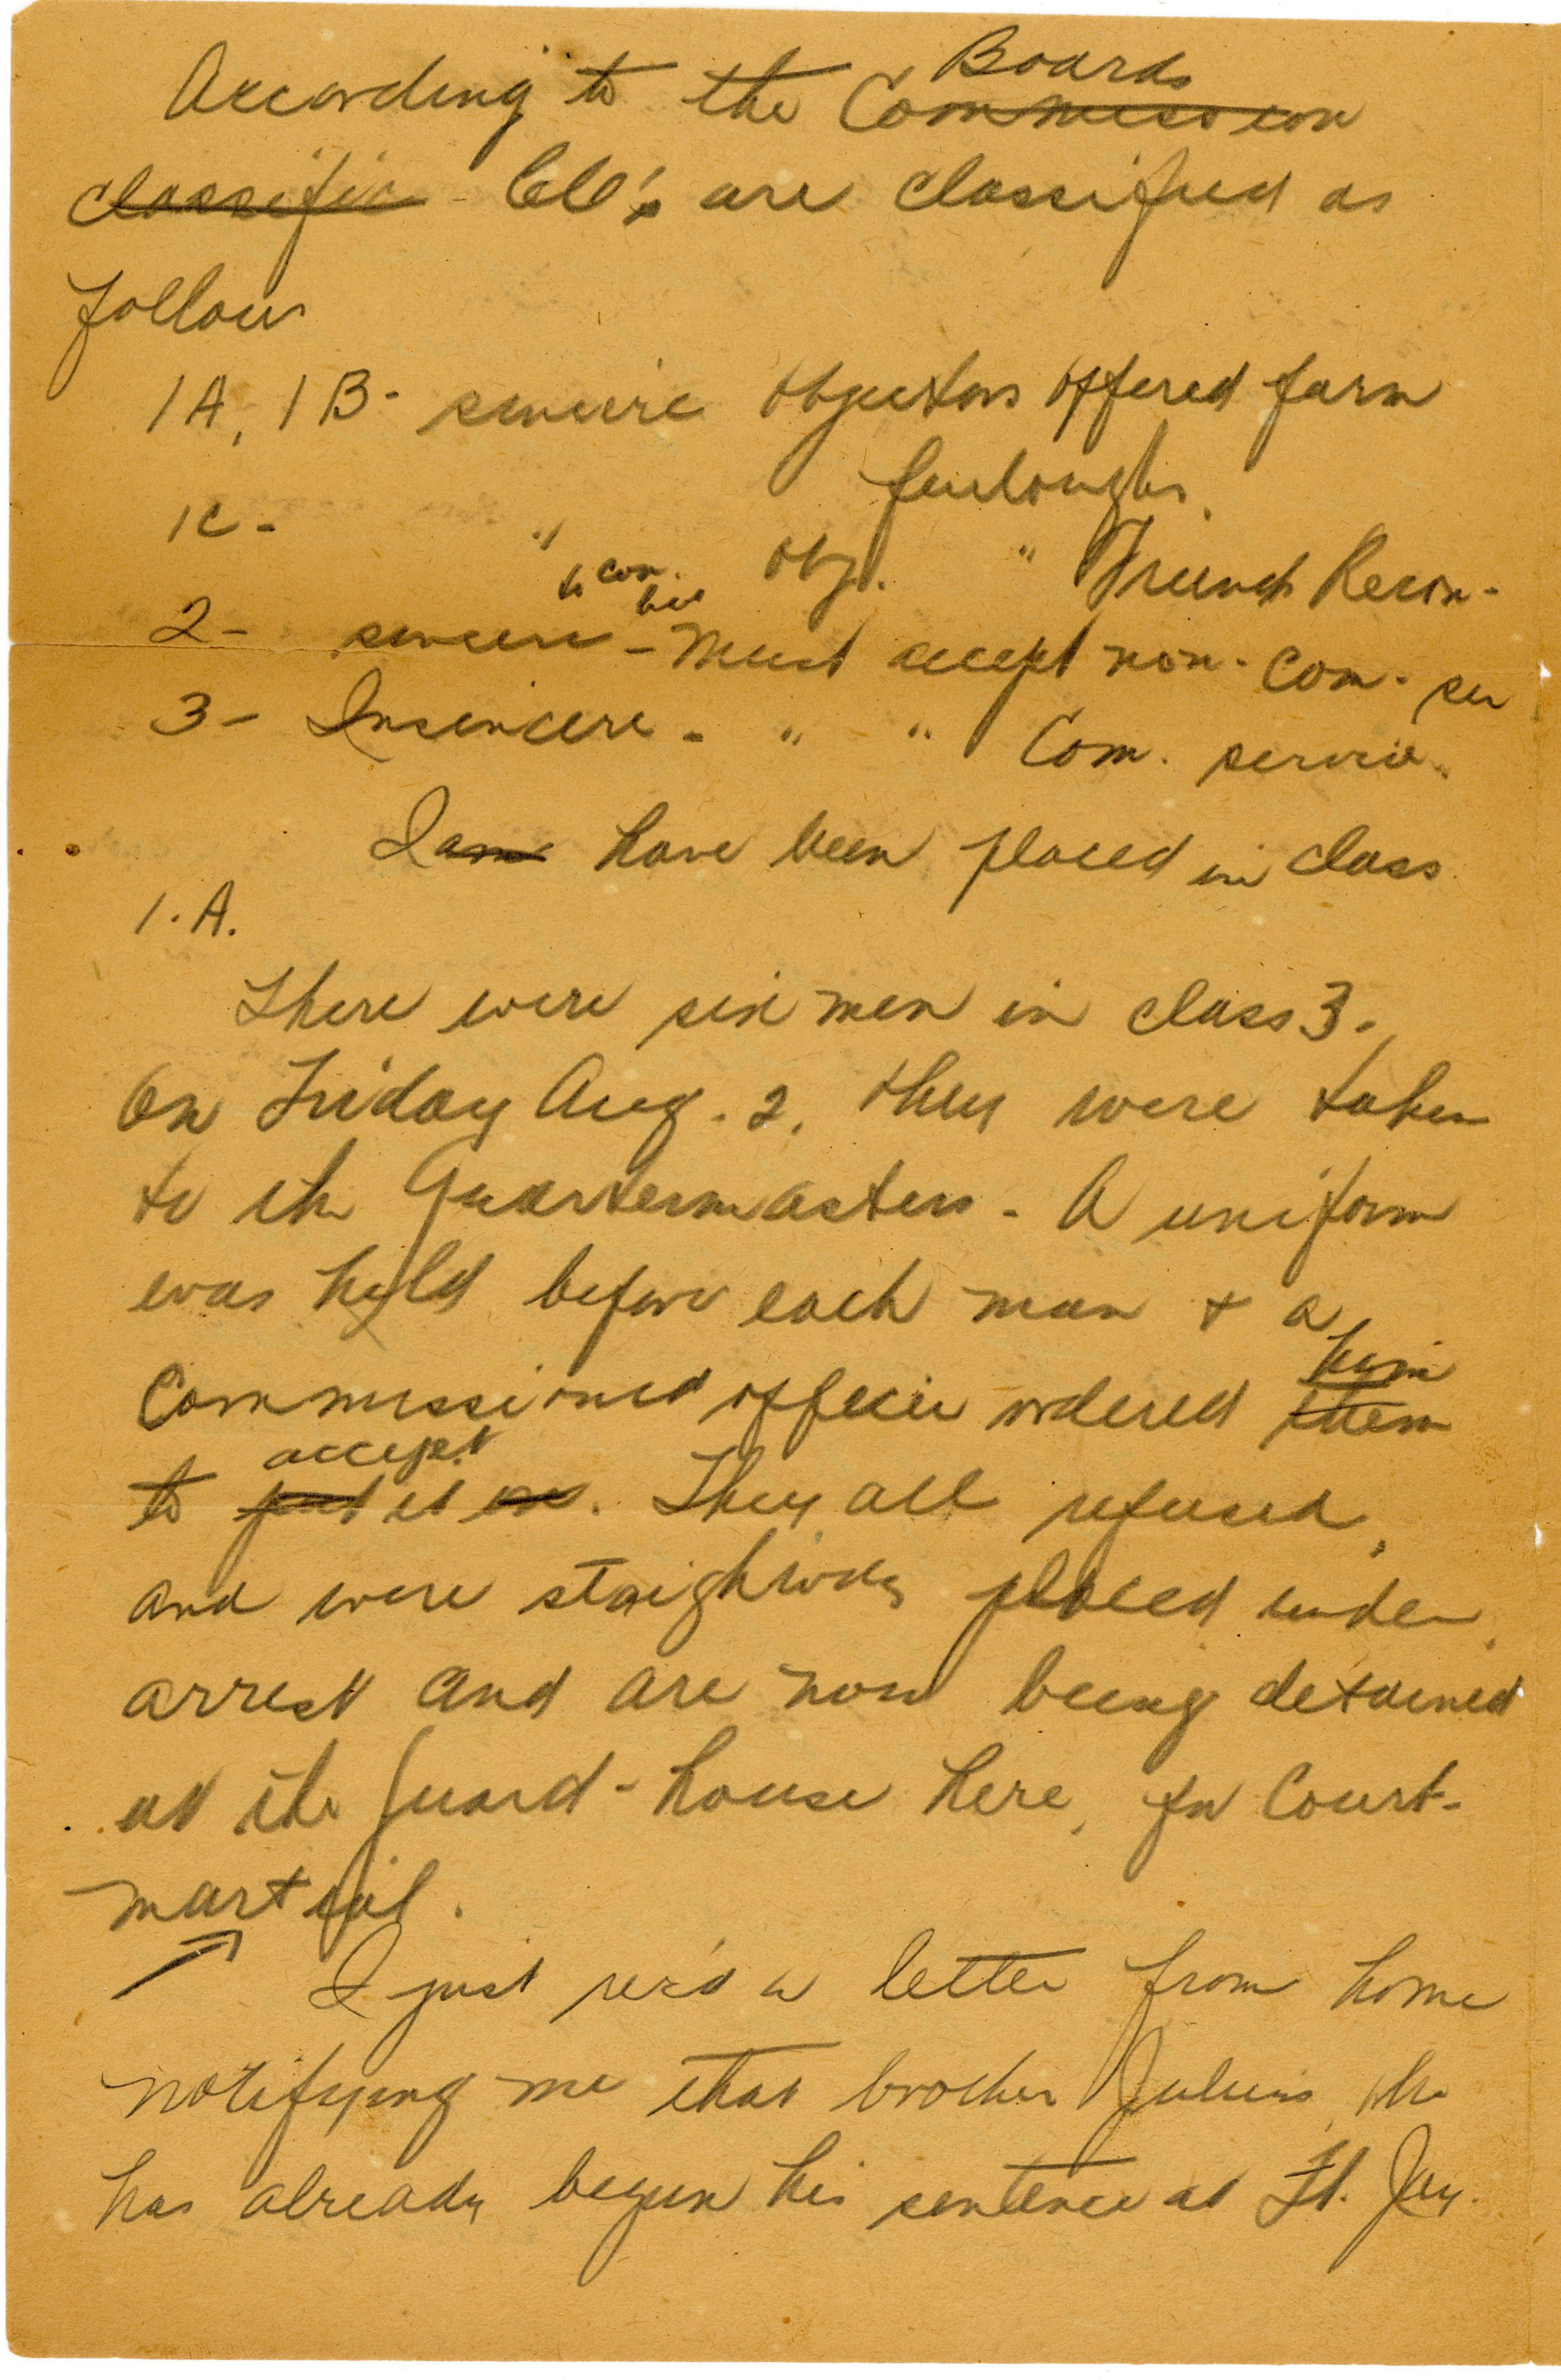 According to the Commission Boards
classific - CO's are classified as
follows
1A, 1B - sincere objectors offered farm
furloughs.
1C - " obj. " French Recon-
2 - sincere to com. - must accept non-com. ser
3 - Insincere - " " Com. service.
I am have been placed in class
1. A.
There were six men in class 3.
On Friday Aug. 2, they were taken
to the Quartermasters - A uniform
was held before each man + a
Commissioned officer ordered them him
to put accept it on. They all refused,
and were staighway placed under
arrest and are now being detained
at the guard-house here, for Court-
martial.
I just rec'd a letter from home
notifying me that brother Julius, who
has already begun his sentence at Ft. Jay.